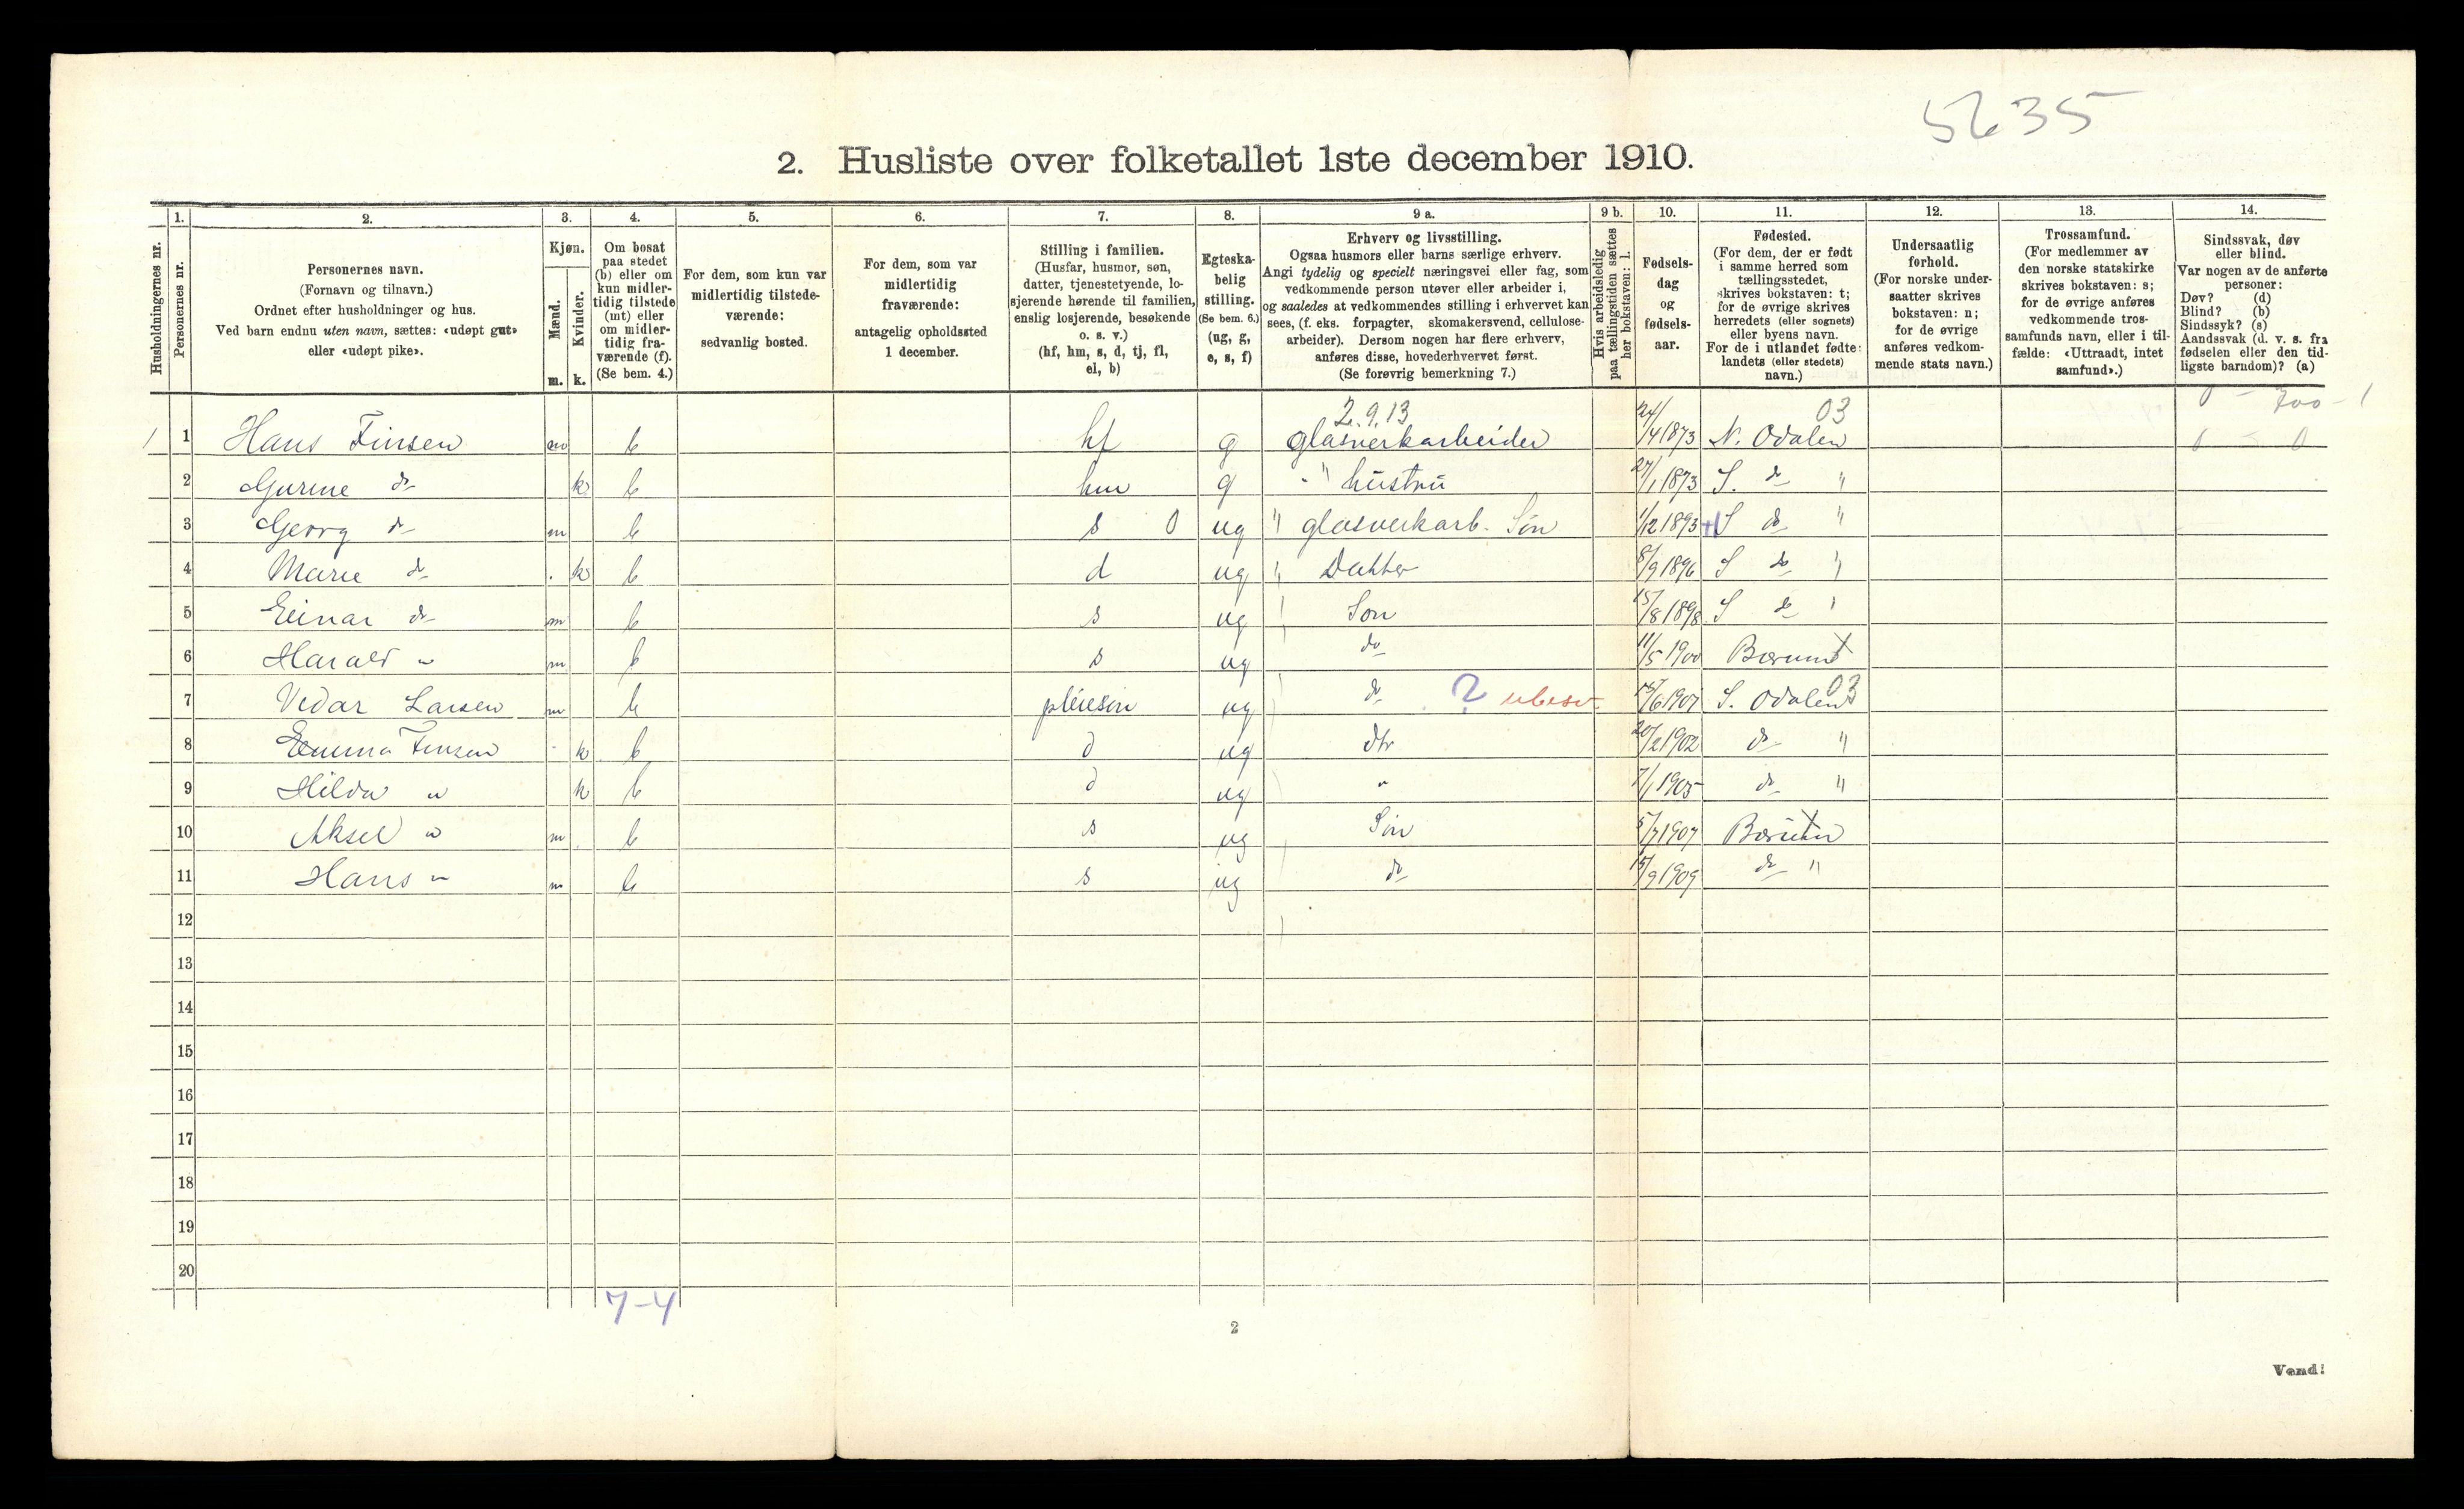 5635
2. Husliste over folketallet 1ste december 1910.
Husholdningernes nr.
1. Personernes nr.
2. Personernes navn. (Fornavn og tilnavn.) Ordnet efter husholdninger og hus. Ved barn endnu uten navn, sættes: «udøpt gut» eller «udøpt pike».
3. Kjøn. Mænd. m. Kvinder. k.
4. Om bosat paa stedet (b) eller om kun midlertidig tilstede (mt) eller om midlertidig fraværende (f). (Se bem. 4.)
5. For dem, som kun var midlertidig tilstedeværende: sedvanlig bosted.
6. For dem, som var midlertidig fraværende: antagelig opholdssted 1 december.
7. Stilling i familien. (Husfar, husmor, søn, datter, tjenestetyende, losjerende hørende til familien, enslig losjerende, besøkende o. s. v.) (hf, hm, s, d, tj, fl, el, b)
8. Egteskabelig stilling. (Se bem. 6.) (ug, g, e, s, f)
9 a. Erhverv og livsstilling. Ogsaa husmors eller barns særlige erhverv. Angi tydelig og specielt næringsvei eller fag, som vedkommende person utøver eller arbeider i, og saaledes at vedkommendes stilling i erhvervet kan sees, (f. eks. forpagter, skomakersvend, cellulosearbeider). Dersom nogen har flere erhverv, anføres disse, hovederhvervet først. (Se forøvrig bemerkning 7.)
9 b. Hvis arbeidsledig paa tællingstiden sættes her bokstaven: l.
10. Fødselsdag og fødselsaar.
11. Fødested. (For dem, der er født i samme herred som tællingsstedet, skrives bokstaven: t; for de øvrige skrives herredets (eller sognets) eller byens navn. For de i utlandet fødte: landets (eller stedets) navn.)
12. Undersaatlig forhold. (For norske undersaatter skrives bokstaven: n; for de øvrige anføres vedkommende stats navn.)
13. Trossamfund. (For medlemmer av den norske statskirke skrives bokstaven: s; for de øvrige anføres vedkommende trossamfunds navn, eller i tilfælde: «Uttraadt, intet samfund».)
14. Sindssvak, døv eller blind. Var nogen av de anførte personer: Døv? (d) Blind? (b) Sindssyk? (s) Aandssvak (d. v. s. fra fødselen eller den tidligste barndom)? (a)
2.9.13 03 0 - 700 - 1
1 1 Hans Finsen m b hf g glasverkarbeider 24/4 1873 N. Odalen
2 Gurine do k b hm g " hustru 27/1 1873 S. do "
3 Georg do m b s 0 ug " glasverkarb. Søn 1/12 1893 S do "
4 Marie do k b d ug " Datter 8/9 1896 S do "
5 Einar do m b s ug Søn 15/8 1898 S do "
6 Harald " m b s ug do 11/5 1900 Bærum t
7 Vidar Larsen m b pleiesøn ug do ? ubesv 15/6 1907 S. Odalen 03
8 Emma Finsen k b d ug dtr 20/2 1902 do "
9 Hilda " k b d ug " 7/1 1905 do "
10 Aksel " m b s ug Søn 5/7 1907 Bærum t
11 Hans " m b s ug do 15/9 1909 do "
12
13
14
15
16
17
18
19
20
7-4
2
Vend!